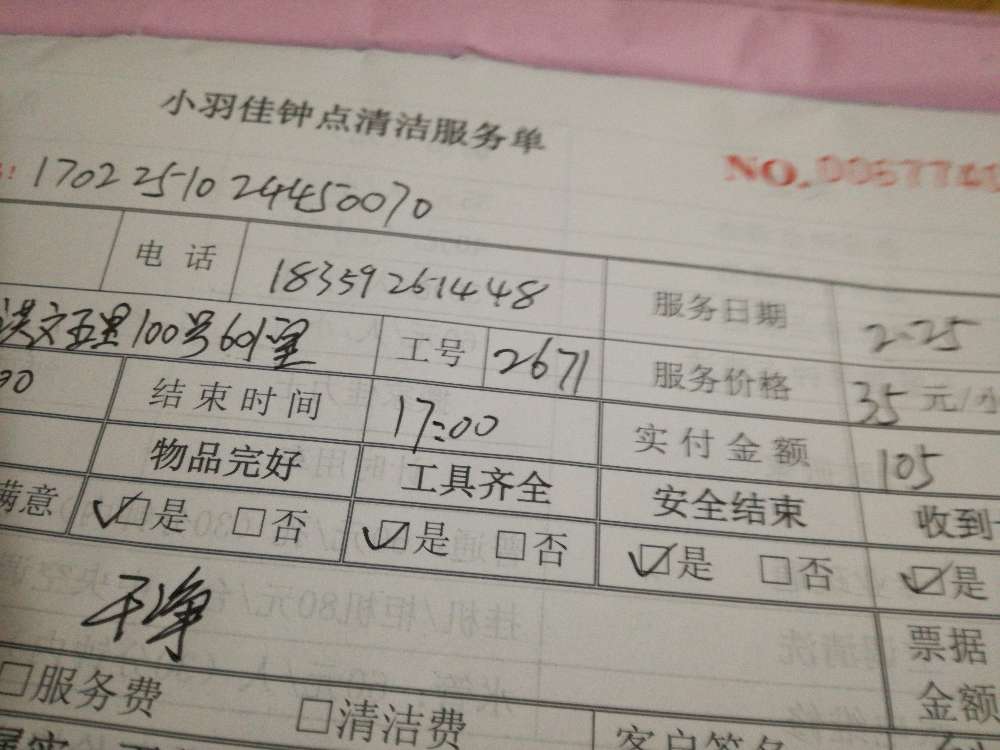 小羽佳钟点清洁服务单
NO.
1702251024450070
电话 18359261448 服务日期 2-25
洪文五里100号601室 工号 2671 服务价格 35元/小
00 结束时间 17:00 实付金额 105
物品完好 工具齐全 安全结束 收到
满意 是 否 是 否 是 否 是
干净
票据
金额
服务费 清洁费
客户签名